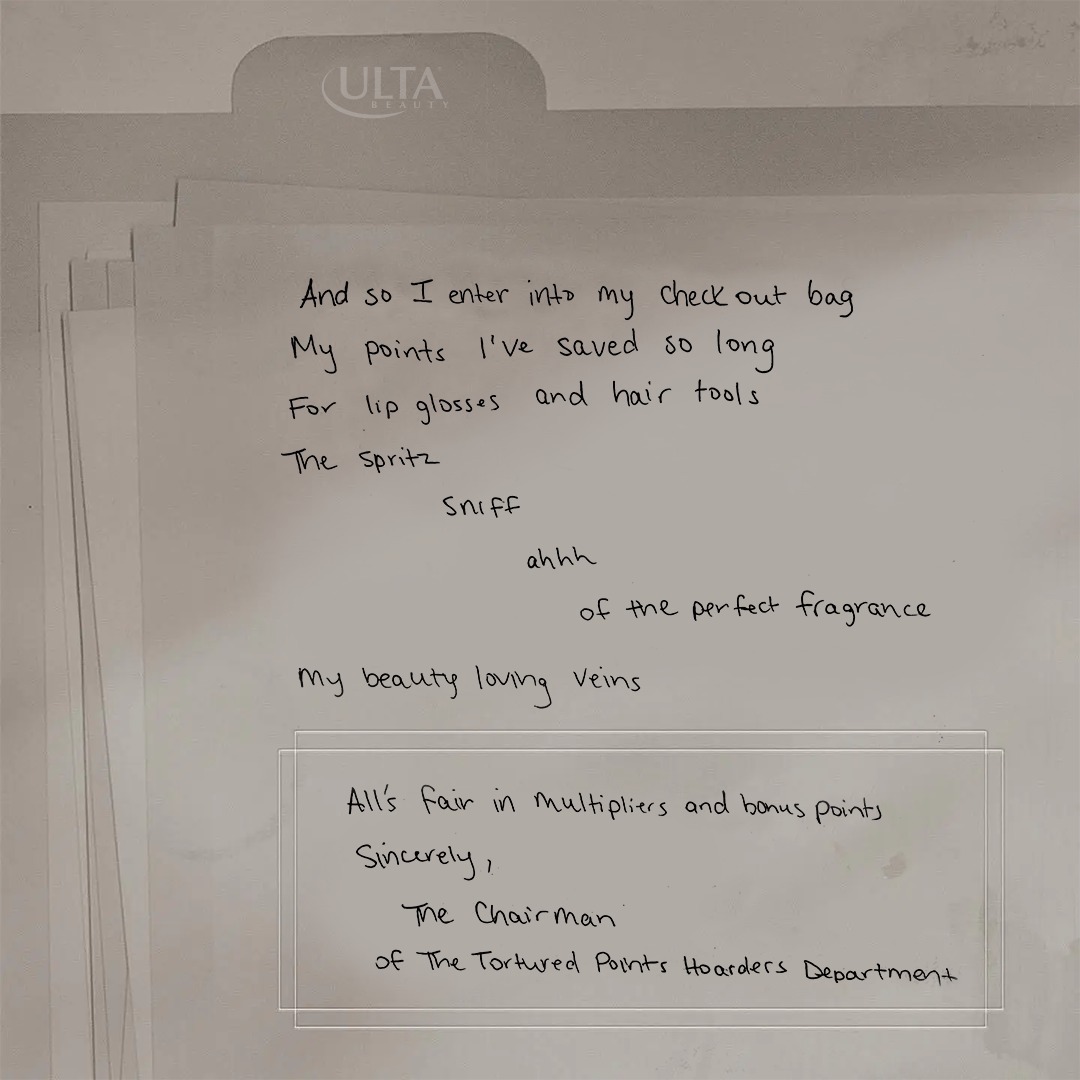 ULTA
BEAUTY
And so I enter into my checkout bag
My points I've saved so long
For lip glosses and hair tools
The spritz
sniff
ahhh
of the perfect fragrance
My beauty loving veins
All's fair in multipliers and bonus points
Sincerely,
The Chairman
of The Tortured Points Hoarders Department